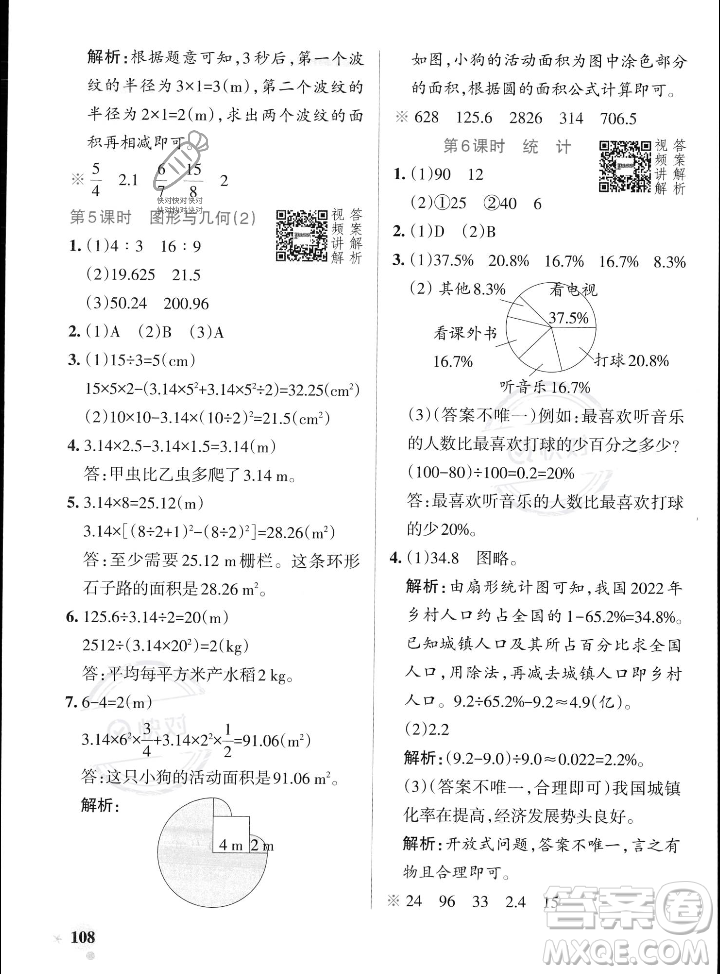 解析：根据题意可知，3秒后，第一个波
纹的半径为3×1=3(m)，第二个波纹的
半径为2×1=2(m)，求出两个波纹的面
积再相减即可。
※ 5/4 2.1 6/7 15/8 2
快对快对快对
快对快对快对
第5课时 图形与几何(2)
视频讲解
答案解析
1. (1)4∶3 16∶9
(2)19.625 21.5
(3)50.24 200.96
2. (1)A (2)B (3)A
3. (1)15÷3=5(cm)
15×5×2-(3.14×5²+3.14×5²÷2)=32.25(cm²)
(2)10×10-3.14×(10÷2)²=21.5(cm²)
4. 3.14×2.5-3.14×1.5=3.14(m)
答：甲虫比乙虫多爬了3.14 m。
5. 3.14×8=25.12(m)
3.14×[(8÷2+1)²-(8÷2)²]=28.26(m²)
答：至少需要25.12 m栅栏。这条环形
石子路的面积是28.26 m²。
6. 125.6÷3.14÷2=20(m)
2512÷(3.14×20²)=2(kg)
答：平均每平方米产水稻2 kg。
7. 6-4=2(m)
3.14×6²×3/4+3.14×2²×1/2=91.06(m²)
答：这只小狗的活动面积是91.06 m²。
解析：
4 m 2 m
108
如图，小狗的活动面积为图中涂色部分
的面积，根据圆的面积公式计算即可。
※ 628 125.6 2826 314 706.5
第6课时 统 计
视频讲解
答案解析
1. (1)90 12
(2)①25 ②40 6
2. (1)D (2)B
3. (1)37.5% 20.8% 16.7% 16.7% 8.3%
(2) 其他8.3% 看电视
37.5%
看课外书
16.7%
打球20.8%
听音乐16.7%
(3)(答案不唯一)例如：最喜欢听音乐
的人数比最喜欢打球的少百分之多少?
(100-80)÷100=20%
答：最喜欢听音乐的人数比最喜欢打球
的少20%。
4. (1)34.8 图略。
解析：由扇形统计图可知，我国2022年
乡村人口约占全国的1-65.2%=34.8%。
已知城镇人口及所占百分比求全国
人口，用除法，再减去城镇人口即乡村
人口。9.2÷65.2%-9.2≈4.9(亿)。
(2)2.2
解析：(9.2-9.0)÷9.0≈0.022=2.2%。
(3)(答案不唯一，合理即可)我国城镇
化率在提高，经济发展势头良好。
解析：开放式问题，答案不唯一，言之有
物且合理即可。
※ 24 96 33 2.4 15
答案圈
MXQE.COM